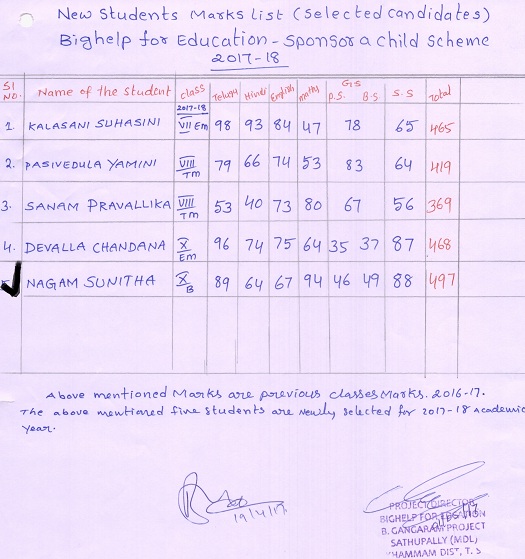 New Students Marks List (Selected candidates)
Bighelp for Education - Sponsor a Child Scheme
2017-18
Sl NO. Name of the Student class Telugu Hindi English maths G.S P.S. B.S S.S Total
2017-18
1. KALASANI SUHASINI VII Em 98 93 84 47 78 65 465
2. PASIVEDULA YAMINI VIII TM 79 66 74 53 83 64 419
3. SANAM PRAVALLIKA VIII TM 53 40 73 80 67 56 369
4. DEVALLA CHANDANA X Em 96 74 75 64 35 37 87 468
NAGAM SUNITHA X B 89 64 67 94 46 49 88 497
Above mentioned Marks are previous classes Marks. 2016-17.
The above mentioned five students are Newly Selected for 2017-18 Academic
Year.
PROJECT DIRECTOR
BIGHELP FOR
B. GANGARAM PROJECT
SATHUPALLY (MDL)
KHAMMAM DIST, T.S